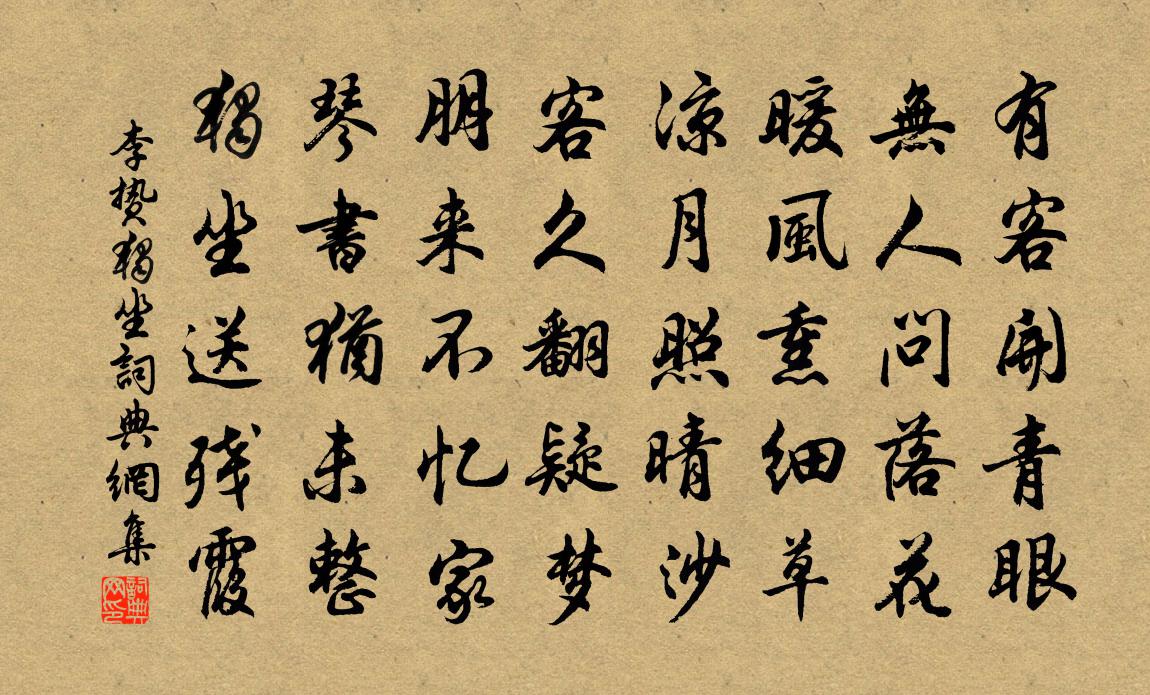 有客開青眼
無人問落花
暖風熏細草
凉月照晴沙
客久翻疑梦
朋来不忆家
琴書猶未整
獨坐送残霞
李贽獨坐詞典網集
詞典网印